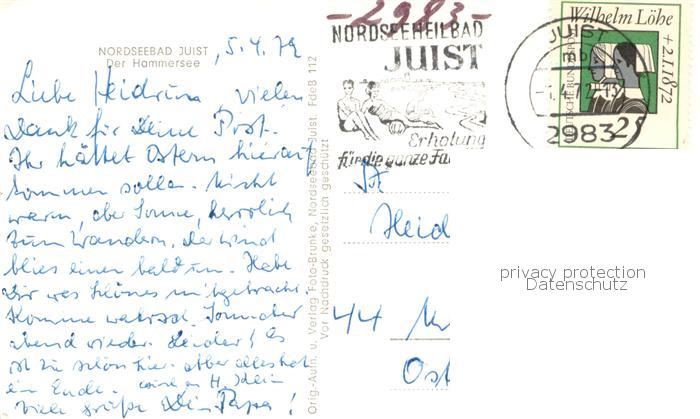 NORDSEEBAD JUIST
Der Hammersee
, 5.4.72
Liebe Heidrun, vielen
Dank für Deine Post.
Ihr hättet Ostern hierauf
kommen sollen. Nicht
warm, aber Sonne, herrlich
zum Wandern, der Wind
blies einen bald um. Habe
Dir was Schönes mitgebracht.
Komme wahrsch. Sonnabend
abend wieder. Leider! Es
ist zu schön hier. Aber alles hat
ein Ende.
Viele Grüße Dein Papa!
Orig.-Aufn. u. Verlag Foto-Brunke, Nordseebad Juist. FdeB 112
Vor Nachdruck gesetzlich geschützt
-2983-
NORDSEEHEILBAD
JUIST
Erholung
für die ganze Fa
JUIST
mb
2983
Wilhelm Löhe
+2.1.1872
DEUTSCHE BUNDESPOST
25
Heid
44 M
Ost
privacy protection
Datenschutz